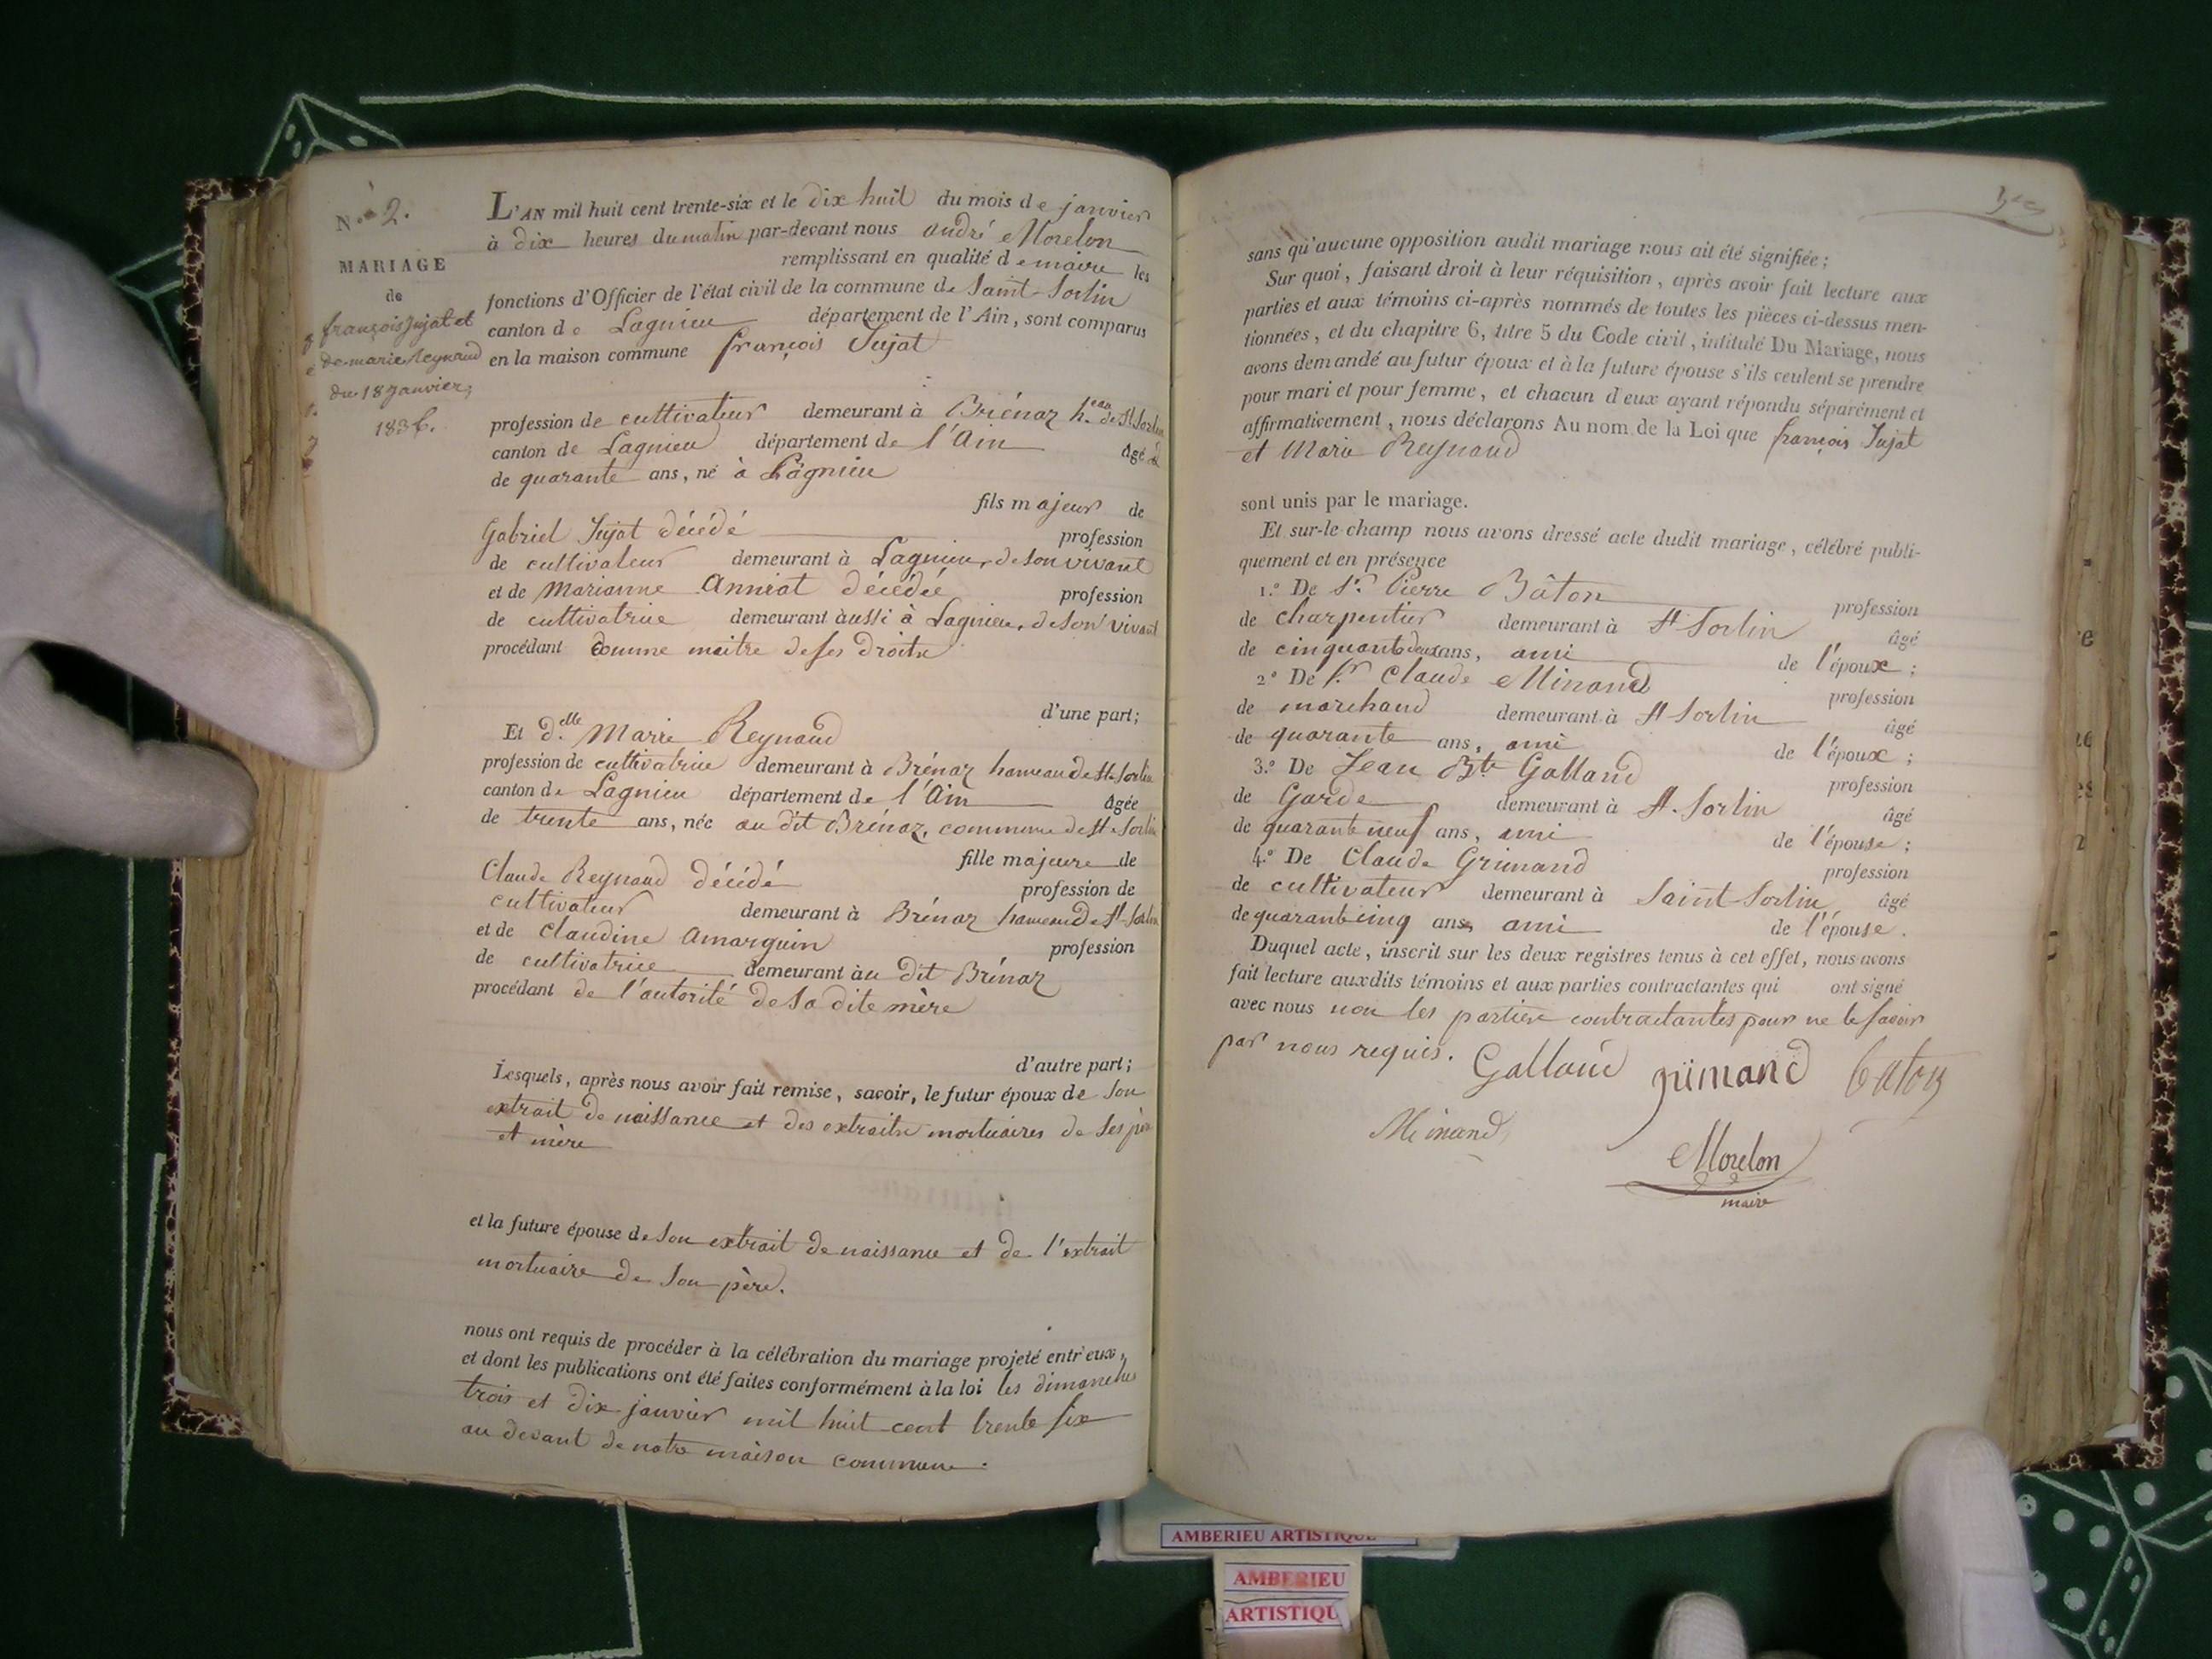 N.º 2.
MARIAGE
de
françois Jujat et
de marie Reynaud
du 18 janvier,
1836.
L'AN mil huit cent trente-six et le dix huit du mois de janvier
à dix heures du matin par-devant nous andré Morelon
remplissant en qualité de maire les
fonctions d'Officier de l'état civil de la commune de Saint-Sorlin
canton de Lagnieu département de l'Ain, sont comparus
en la maison commune françois Jujat
profession de cultivateur demeurant à Briénaz h.eau de St Sorlin
canton de Lagnieu département de l'Ain âgé
de quarante ans, né à Lagnieu
fils majeur de
Gabriel Jujat décédé profession
de cultivateur demeurant à Lagnieu, de son vivant
et de Marianne Anniat décédée profession
de cultivatrice demeurant aussi à Lagnieu, de son vivant
procédant comme maitre de ses droits
d'une part;
Et d.elle Marie Reynaud
profession de cultivatrice demeurant à Brénaz hameau de St-Sorlin
canton de Lagnieu département de l'Ain âgée
de trente ans, née au dit Brénaz, commune de St-Sorlin
fille majeure de
Claude Reynaud décédé profession de
cultivateur demeurant à Brénaz hameau de St-Sorlin
et de Claudine Amarguin profession
de cultivatrice demeurant au dit Brénaz
procédant de l'autorité de sa dite mère
d'autre part;
Lesquels, après nous avoir fait remise, savoir, le futur époux de son
extrait de naissance et des extraits mortuaires de ses père
et mère
et la future épouse de son extrait de naissance et de l'extrait
mortuaire de son père.
nous ont requis de procéder à la célébration du mariage projeté entr'eux,
et dont les publications ont été faites conformément à la loi les dimanches
trois et dix janvier mil huit cent trente six
au devant de notre maison commune.
sans qu'aucune opposition audit mariage nous ait été signifiée;
Sur quoi, faisant droit à leur réquisition, après avoir fait lecture aux
parties et aux témoins ci-après nommés de toutes les pièces ci-dessus men-
tionnées, et du chapitre 6, titre 5 du Code civil, intitulé Du Mariage, nous
avons demandé au futur époux et à la future épouse s'ils veulent se prendre
pour mari et pour femme, et chacun d'eux ayant répondu séparément et
affirmativement, nous déclarons Au nom de la Loi que françois Jujat
et Marie Reynaud
sont unis par le mariage.
Et sur-le-champ nous avons dressé acte dudit mariage, célébré publi-
quement et en présence
1.º De S.r Pierre Bâton profession
de charpentier demeurant à St Sorlin âgé
de cinquante deux ans, ami de l'époux;
2.º De S.r Claude Minand profession
de marchand demeurant à St Sorlin âgé
de quarante ans, ami de l'époux;
3.º De Jean Bte Galland profession
de Garde demeurant à St. Sorlin âgé
de quarante neuf ans, ami de l'épouse;
4.º De Claude Grimand profession
de cultivateur demeurant à Saint-Sorlin âgé
de quarante cinq ans, ami de l'épouse.
Duquel acte, inscrit sur les deux registres tenus à cet effet, nous avons
fait lecture auxdits témoins et aux parties contractantes qui ont signé
avec nous non les parties contractantes pour ne le savoir
par nous requis. Galland grimand baton
Minand
Morelon
maire
AMBERIEU ARTISTIQUE
AMBERIEU
ARTISTIQU